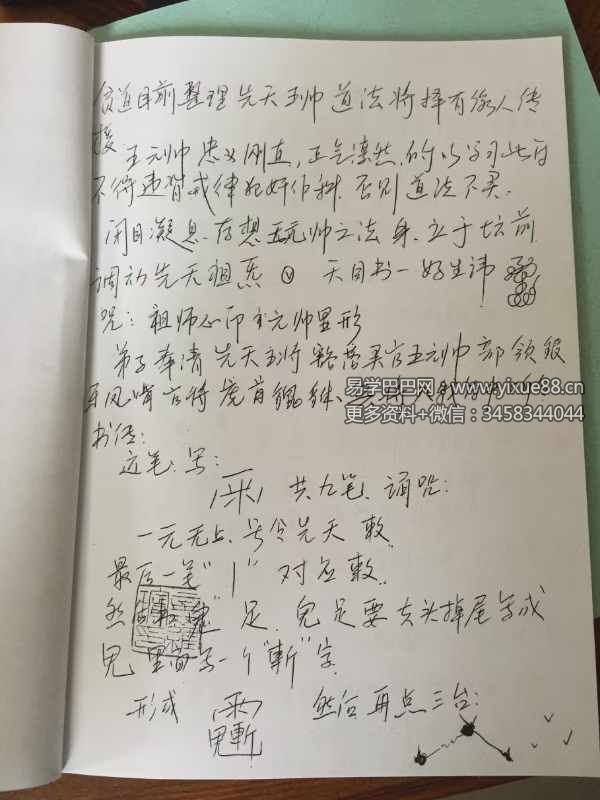 目前整理先天王帅道法将择有缘人传
授
王元帅忠义刚直,正气凛然,所以学习此法
不得违背戒律犯奸作科,否则道法不灵。
闭目凝息,存想王元帅之法身,立于坛前
调动先天祖炁 天目书一好生讳
咒:祖师心印王元帅显形
弟子奉请先天主将 豁落灵官王元帅 部领银
牙凤嘴
易学巴巴网 www.yixue88.cn
更多资料+微信:3458344044
书传:
起笔:写:
共九笔,诵咒:
一元无上,号令先天 敕
最后一笔"丨"对应敕
然后 足,鬼足要去头掉尾写成
里面写一个"斬"字
形成 然后再点三台: